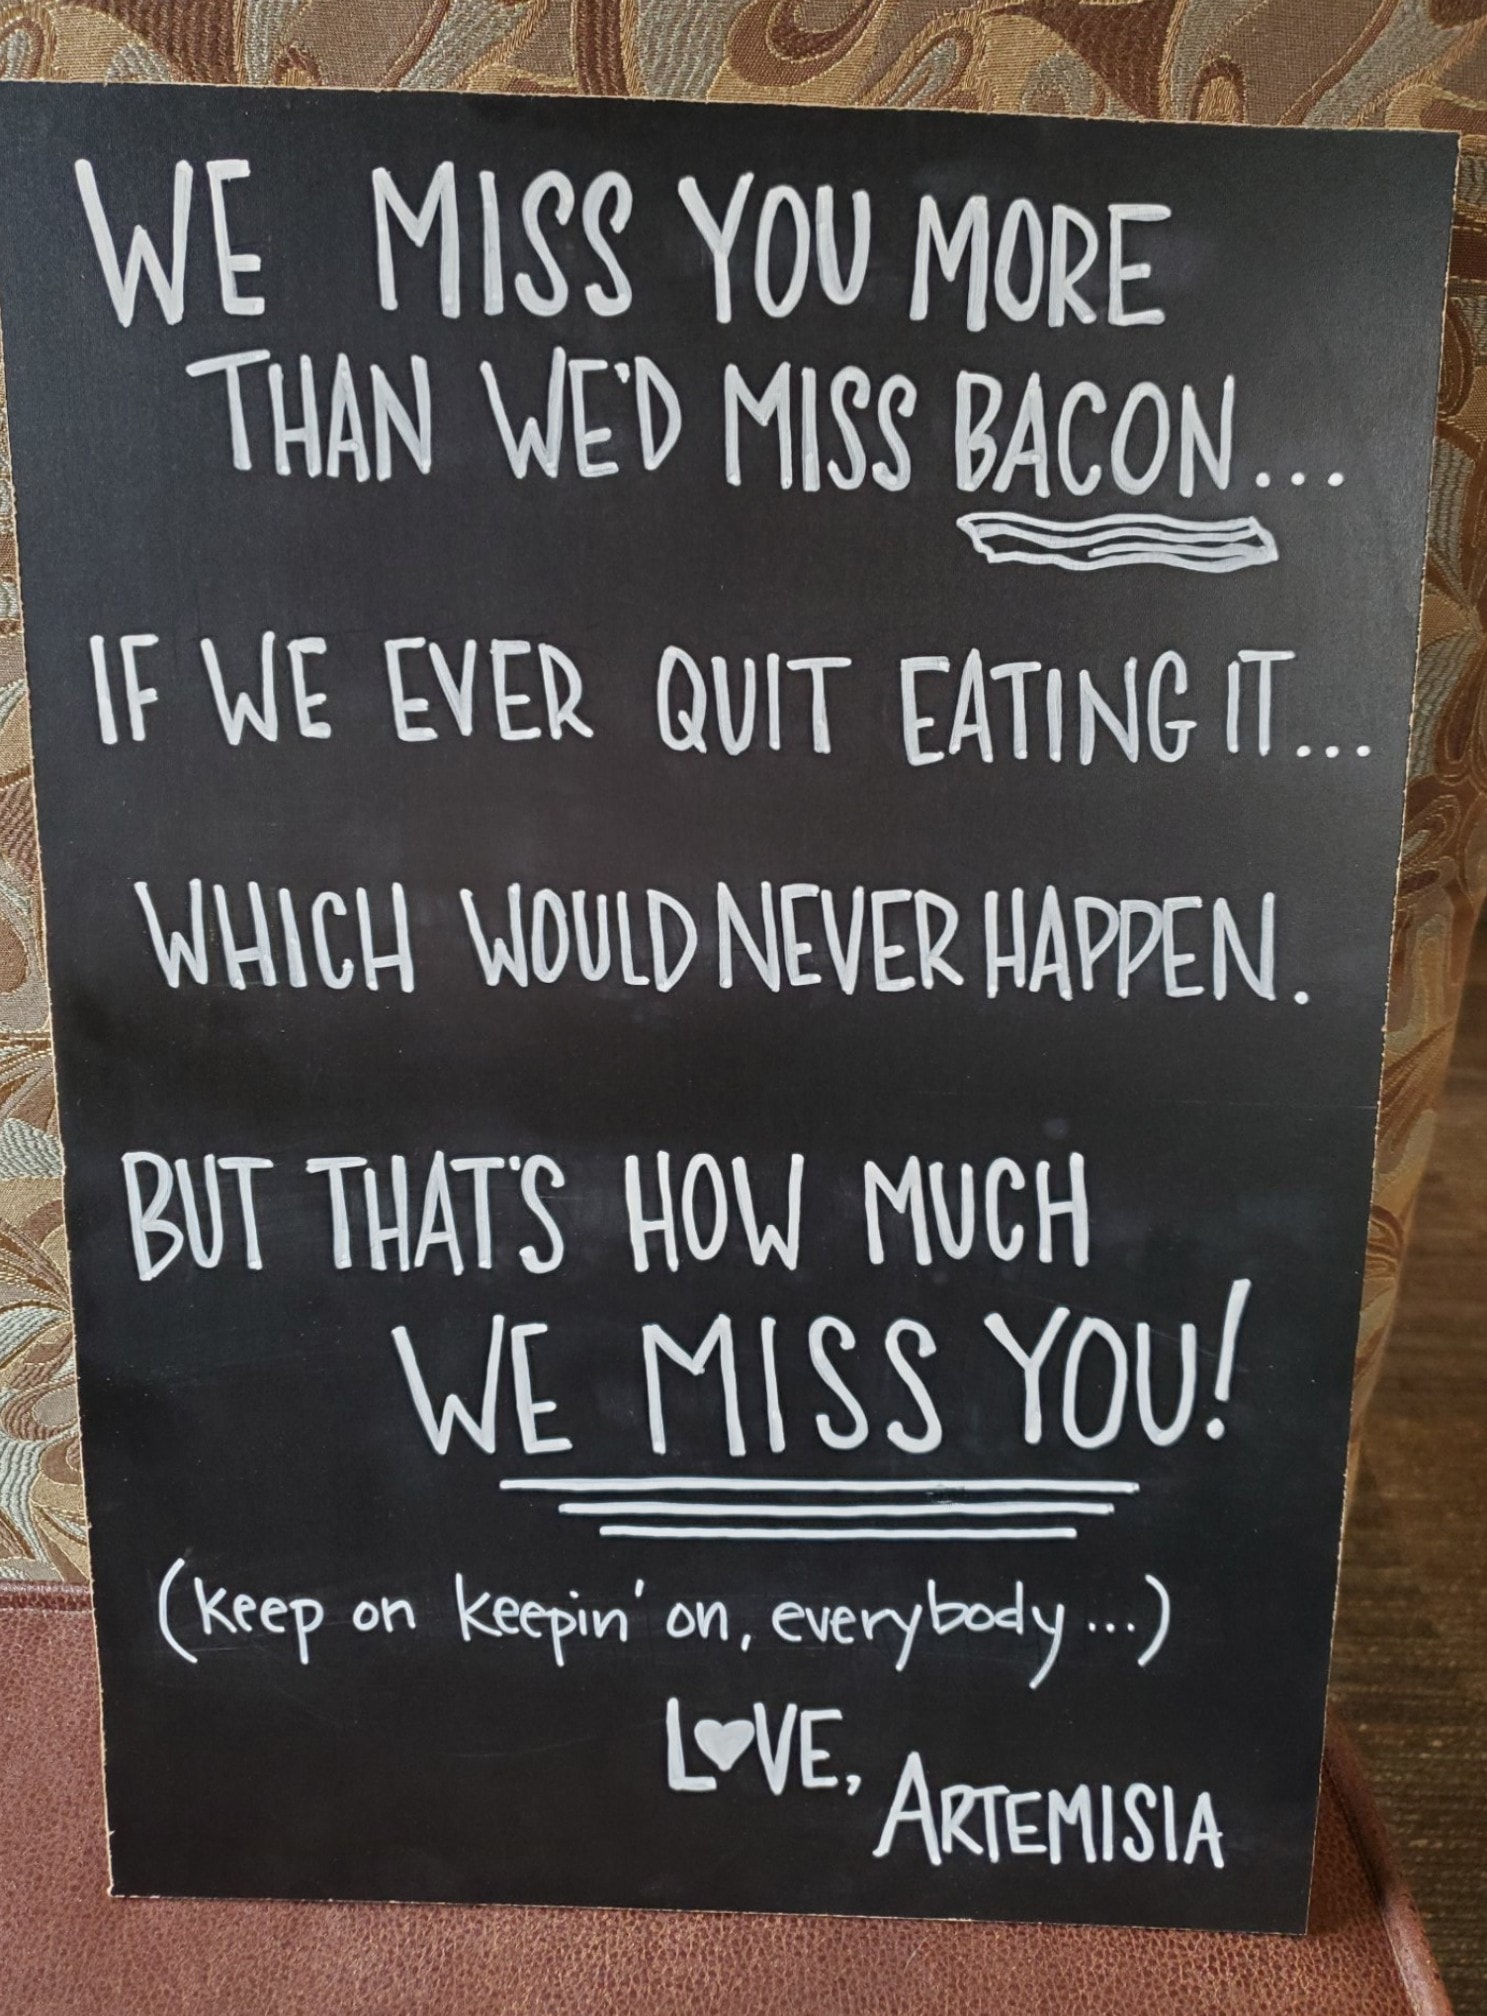 WE MISS YOU MORE
THAN WE'D MISS BACON...
IF WE EVER QUIT EATING IT...
WHICH WOULD NEVER HAPPEN.
BUT THAT'S HOW MUCH
WE MISS YOU!
(keep on keepin' on, everybody...)
L♥VE,
ARTEMISIA